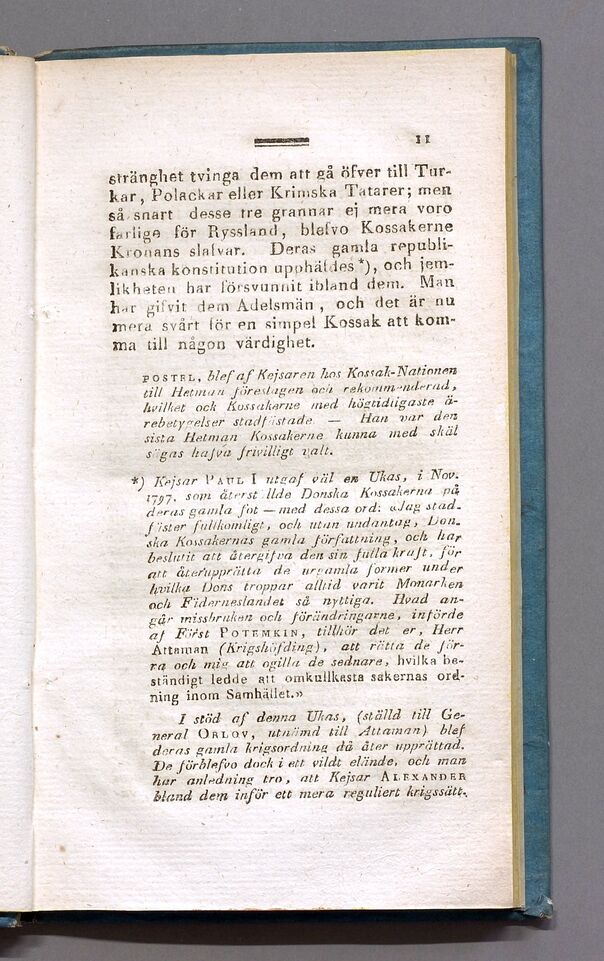 11
stränghet tvinga dem att gå öfver till Tur-
kar, Polackar eller Krimska Tatarer; men
så snart desse tre grannar ej mera voro
farlige för Ryssland, blefvo Kossakerne
Kronans slafvar. Deras gamla republi-
kanska konstitution upphäfdes *), och jem-
likheten har försvunnit ibland dem. Man
har gifvit dem Adelsmän, och det är nu
mera svårt för en simpel Kossak att kom-
ma till någon värdighet.
POSTEL, blef af Kejsaren hos Kossak-Nationen
till Hetman föreslagen och rekommenderad,
hvilket ock Kossakerne med högtidligaste ä-
rebetygelser stadfästade. — Han var den
sista Hetman Kossakerne kunna med skäl
sägas hafva frivilligt valt.
*) Kejsar PAUL I utgaf väl en Ukas, i Nov.
1797, som återställde Donska Kossakerna på
deras gamla fot — med dessa ord: «Jag stad-
fäster fullkomligt, och utan undantag, Don-
ska Kossakernas gamla författning, och har
beslutit att återgifva den sin fulla kraft, för
att återupprätta de urgamla former under
hvilka Dons troppar alltid varit Monarken
och Fäderneslandet så nyttiga. Hvad an-
går missbruken och förändringarne, införde
af Först POTEMKIN, tillhör det er, Herr
Attaman (Krigshöfding), att rätta de för-
ra och mig att ogilla de sednare, hvilka be-
ständigt ledde att omkullkasta sakernas ord-
ning inom Samhället.»
I stöd af denna Ukas, (ställd till Ge-
neral ORLOV, utnämd till Attaman) blef
deras gamla krigsordning då åter upprättad.
De förblefvo dock i ett vildt elände, och man
har anledning tro, att Kejsar ALEXANDER
bland dem inför ett mera reguliert krigssätt.